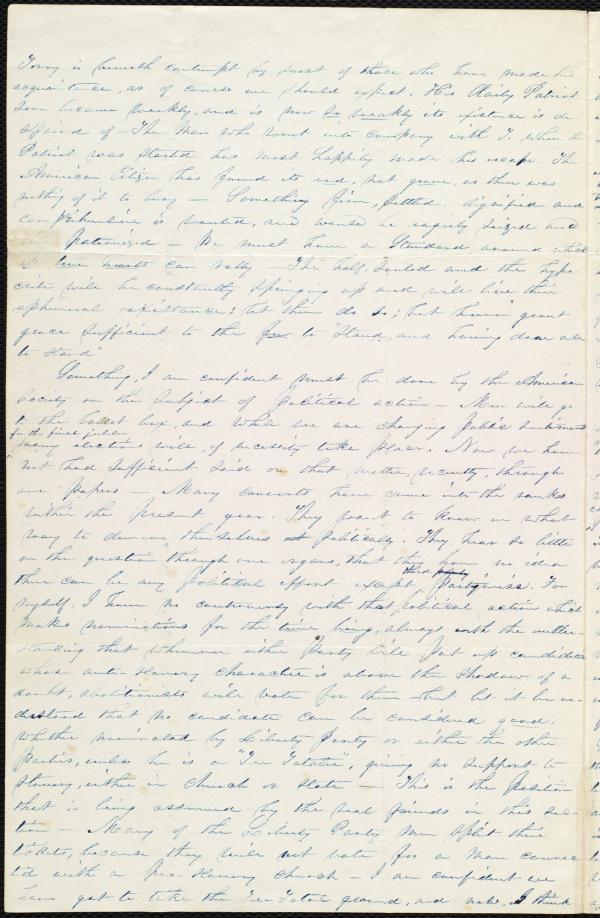 Torrey is beneath contempt by most of those who have made his
acquaintance, as of course one should expect. His Daily Patriot
soon became weekly, and is now so weakly its existence is de
spaired of – The man who went into company with T. when the
Patriot was started has most happily made his escape – The
American Citizen has found its end, not grave, as there was
nothing of it to bury – Something firm, settled, dignified and
comprehensive is wanted, and would be eagerly seized and
patronized – We must have a Standard around which
true hearts can rally – The half souled and the hypo-
crite will be constantly springing up and will live their
ephemeral existence: let them do so; but heaven grant
grace sufficient to the few to stand, and having done all
to stand"
Something, I am confident must be done by the American
Society on the subject of political action – Men will go
to the ballot box, and while we are changing public sentiment
for the finer justice
many elections will, of necessity take place. Now we have
not had sufficient said on that matter, recently, through
our papers – Many converts have come into the ranks
within the present year. They want to know in what
way to demean themselves politically. They hear so little
on the question through our organs, that they have no idea
there can be any political effort except partyism. For
myself, I have no controversy with that political action which
makes nominations for the time being, always with the under-
standing that whenever either party will put up candidates
whose anti-slavery character is above the shadow of a
doubt, abolitionists will vote for them – but let it be un-
derstood that no candidate can be considered good.
whether nominated by Liberty Party or either the other
parties, unless he is a "Tee Totaler", giving no support to
slavery, either in Church or State – This is the position
that is being assumed by the real friends in this sec-
tion – Many of the Liberty Party men split their
tickets, because they will not vote for a man connec
ted with a pro-slavery church – I am confident we
have got to take the Tee Total ground, and note, I think